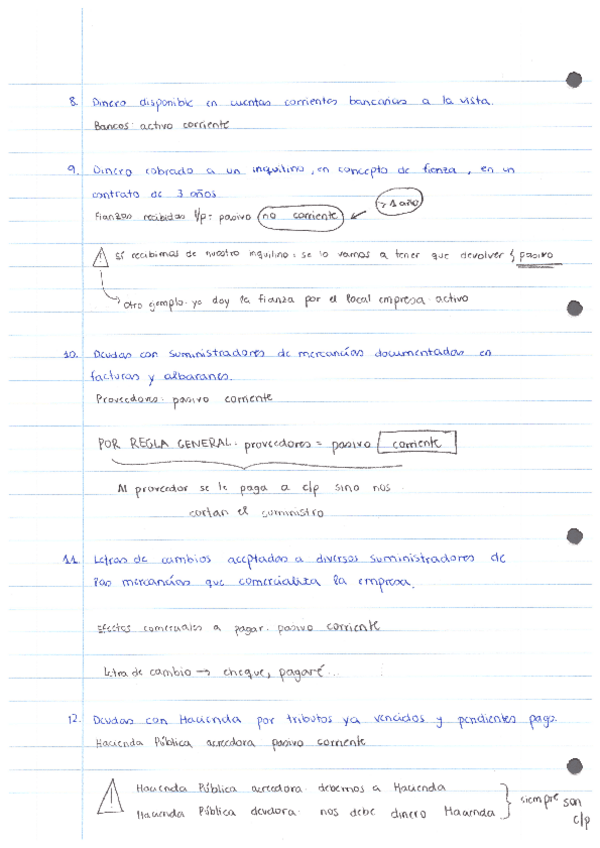 8. Dinero disponible en cuentas corrientes bancarias a la vista.
Bancos: activo corriente
9. Dinero cobrado a un inquilino, en concepto de fianza, en un
contrato de 3 años
Fianzas recibidas l/p: pasivo no corriente ← > 1 año
⚠ Si recibimos de nuestro inquilino: se lo vamos a tener que devolver } pasivo
→ otro ejemplo: yo doy la fianza por el local empresa: activo
10. Deudas con suministradores de mercancías documentadas en
facturas y albaranes.
Proveedores: pasivo corriente
POR REGLA GENERAL: proveedores = pasivo corriente
Al proveedor se le paga a c/p sino nos
cortan el suministro
11. Letras de cambios aceptadas a diversos suministradores de
las mercancías que comercializa la empresa.
Efectos comerciales a pagar: pasivo corriente
Letra de cambio → cheque, pagaré...
12. Deudas con Hacienda por tributos ya vencidos y pendientes pago.
Hacienda Pública acreedora: pasivo corriente
⚠ Hacienda Pública acreedora: debemos a Hacienda
Hacienda Pública deudora: nos debe dinero Hacienda } siempre son c/p